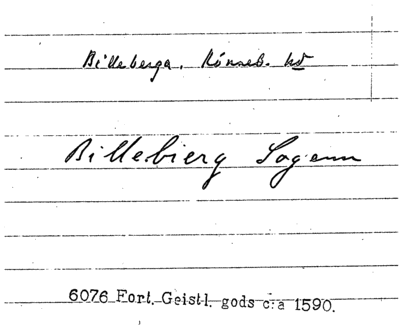 Billeberga. Rönneb. hd
Billebierg Sogenn
6076 Fort. Geistl. gods c:a 1590.